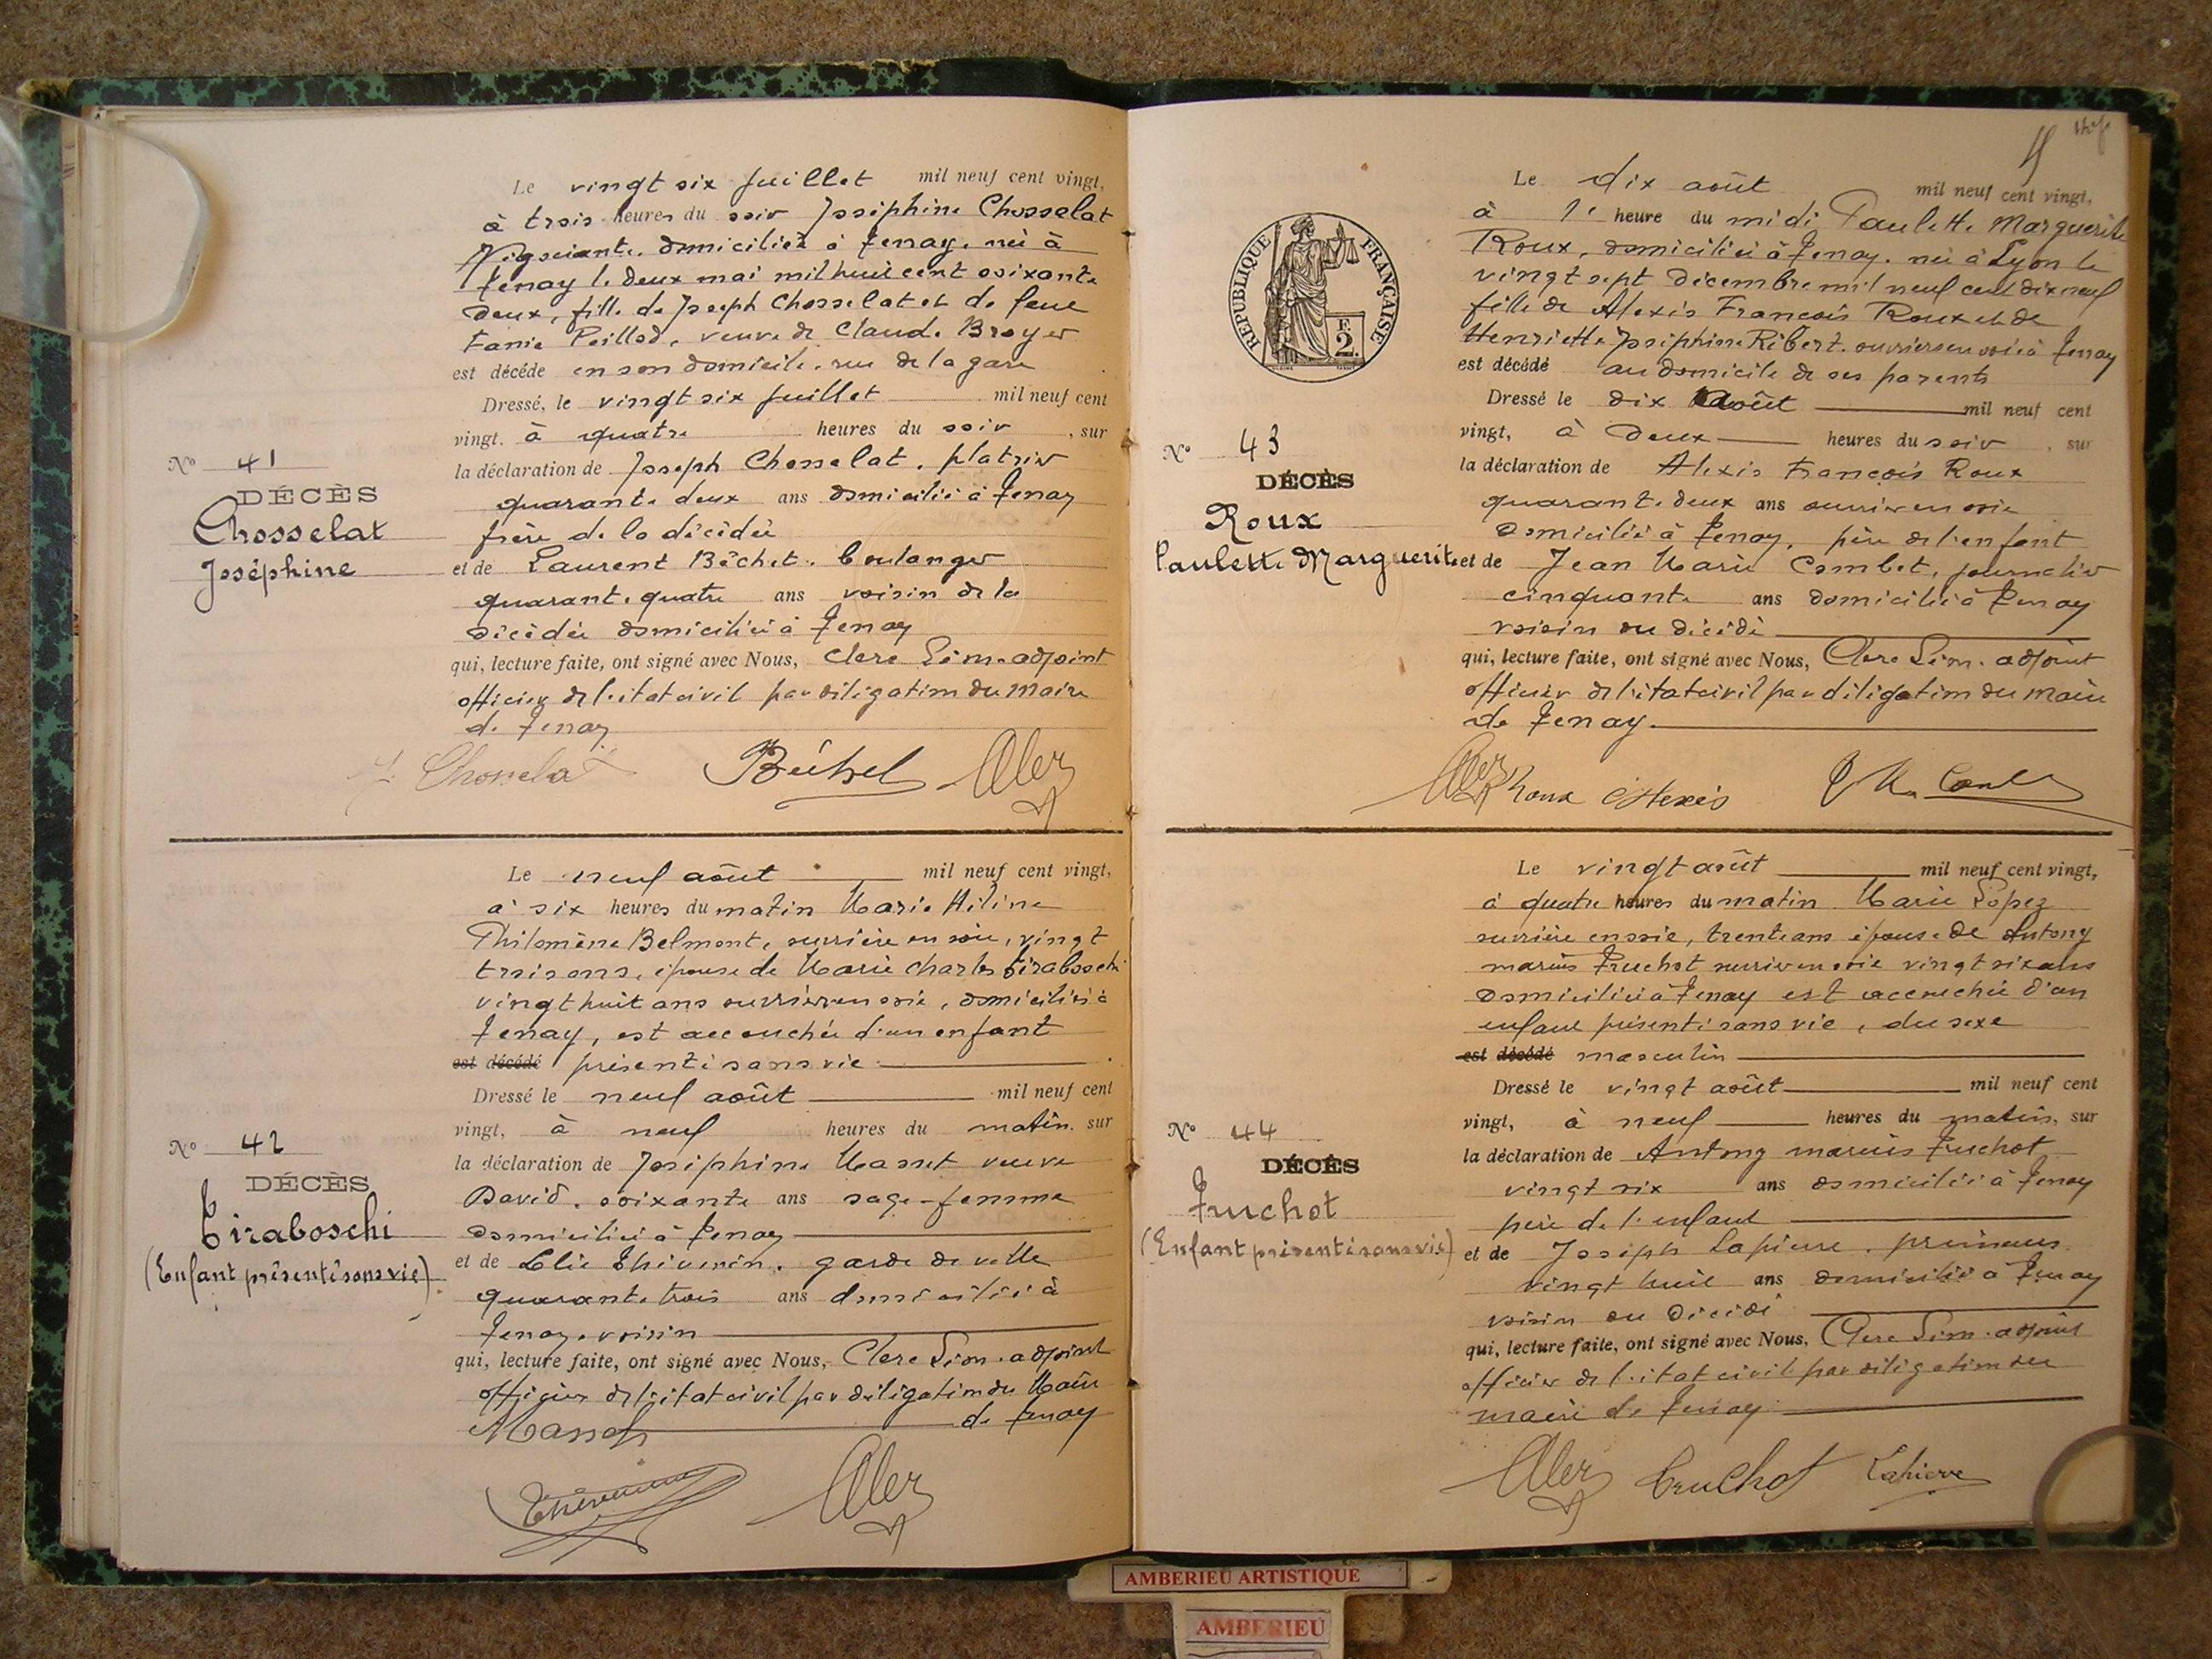 Le vingt six juillet mil neuf cent vingt,
à trois heures du soir Joséphine Chosselat
Négociante domiciliée à Tenay, née à
Tenay le deux mai mil huit cent soixante
deux, fille de Joseph Chosselat et de feue
Fanie Peillod, veuve de Claude Broyer
est décédé en son domicile, rue de la gare
Dressé, le vingt six juillet mil neuf cent
vingt, à quatre heures du soir, sur
la déclaration de Joseph Chosselat, platrier
quarante deux ans domicilié à Tenay
frère de la décédée
et de Laurent Béchet, boulanger
quarante quatre ans voisin de la
décédée domicilié à Tenay
qui, lecture faite, ont signé avec Nous, Clerc Léon adjoint
officier de l'état civil par délégation du Maire
de Tenay
Nº 41
DÉCÈS
Chosselat
Joséphine
Le neuf août mil neuf cent vingt,
à six heures du matin Marie Hélène
Philomène Belmont, ouvrière en soie, vingt
trois ans, épouse de Marie Charles Tiraboschi
vingt huit ans ouvrier en soie, domiciliés à
Tenay, est accouchée d'un enfant
est décédé présenté sans vie
Dressé le neuf août mil neuf cent
vingt, à neuf heures du matin, sur
la déclaration de Joséphine Masset veuve
David, soixante ans sage-femme
domiciliée à Tenay
et de Elie Thévenin, garde de ville
quarante trois ans domicilié à
Tenay, voisin
qui, lecture faite, ont signé avec Nous, Clerc Léon adjoint
officier de l'état civil par délégation du Maire
de Tenay
Nº 42
DÉCÈS
Tiraboschi
(Enfant présenté sans vie)
RÉPUBLIQUE FRANÇAISE
2
Le dix août mil neuf cent vingt,
à 1e heure du midi Paulette Marguerite
Roux, domiciliée à Tenay, née à Lyon le
vingt sept décembre mil neuf cent dix neuf
fille de Alexis François Roux et de
Henriette Joséphine Ribert, ouvriers en soie à Tenay
est décédé au domicile de ses parents
Dressé le dix août mil neuf cent
vingt, à deux heures du soir, sur
la déclaration de Alexis François Roux
quarante deux ans ouvrier en soie
domicilié à Tenay, père de l'enfant
et de Jean Marie Combet, journalier
cinquante ans domicilié à Tenay
voisin du décédé
qui, lecture faite, ont signé avec Nous, Clerc Léon adjoint
officier de l'état civil par délégation du maire
de Tenay.
Roux Alexis
Nº 43
DÉCÈS
Roux
Paulette Marguerite
Le vingt août mil neuf cent vingt,
à quatre heures du matin Marie Lopez
ouvrière en soie, trente ans épouse de Antony
marius Truchot ouvrier en soie vingt six ans
domiciliée à Tenay est accouchée d'un
enfant présenté sans vie, du sexe
est décédé masculin
Dressé le vingt août mil neuf cent
vingt, à neuf heures du matin, sur
la déclaration de Antony marius Truchot
vingt six ans domicilié à Tenay
père de l'enfant
et de Joseph Lapierre, primeurs
vingt huit ans domicilié à Tenay
voisin du décédé
qui, lecture faite, ont signé avec Nous, Clerc Léon adjoint
officier de l'état civil par délégation du
maire de Tenay
Truchot Lapierre
Nº 44
DÉCÈS
Truchot
(Enfant présenté sans vie)
AMBERIEU ARTISTIQUE
AMBERIEU